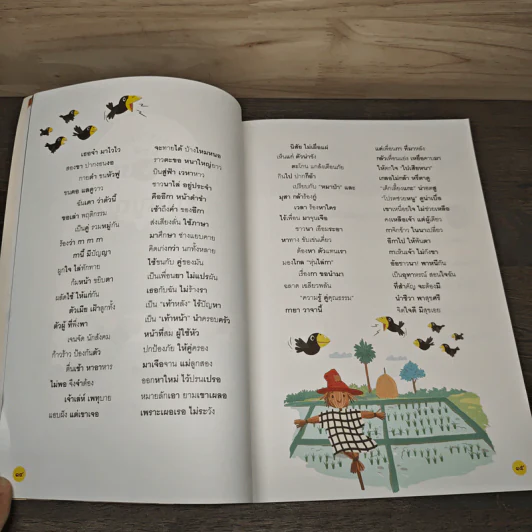 เธอจ๋า มาไวไว
สองขา ปากแหลม
กายดำ ขนหัวฟู
ขนคอ แลดูวาว
ฉันเคา ว่าตัวนี้
ขอเล่า พฤติกรรม
เป็นคู่ รวมหมู่กัน
ร้องว่า กา กา กา
กานี้ มีปัญญา
ถูกใจ ไล่ทักทาย
ก้มหน้า ขยิบตา
ผลัดไซ้ ให้แก่กัน
ตัวเมีย เฝ้าลูกทั้ง
ตัวผู้ ที่พึ่งพา
เจนจัด นักสังคม
ก้าวร้าว ป้องกันตัว
ตื่นเช้า หาอาหาร
ไม่พอ จึงจำต้อง
เจ้าเล่ห์ เพทุบาย
แอบฝัง แต่เขาเจอ
จะทายได้ บ้างไหมหนอ
ราวตะขอ หนาใหญ่ยาว
ปีนสู่ฟ้า เวหาหาว
ยาวนาไล่ อยู่ประจำ
คืออีกา หน้าดำขำ
เช้าถึงค่ำ ของอีกา
ส่งเสียงลั่น ใช้ภาษา
มาศึกษา ช่างแยบคาย
คิดเก่งกว่า นกทั้งหลาย
ใช้ขนกับ คู่ของมัน
เป็นเพื่อนยา ไม่แปรผัน
เธอกับฉัน ไม่ร้างรา
เป็น "เท้าหลัง" ไร้ปัญหา
เป็น "เท้าหน้า" นำครอบครัว
หน้าที่สม ผู้ใช้หัว
ปกป้องภัย ให้คู่ครอง
มาเจือจาน แม่ลูกสอง
ออกหาใหม่ ไร้ปรนเปรอ
หมายลักเอา ยามเขาเผลอ
เพราะเผอเรอ ไม่ระวัง
๑๔
นิสัย ไม่เผื่อแผ่
เห็นแก่ ตัวน่าชัง
ตะโกน แกล้งเตือนภัย
กินไป ปากก็ล้า
เปรียบกับ "หมาป่า" และ
มุสา กล้าร้องกู่
เวลา ร้องหาใคร
ใช้เพื่อน มาขุนเจือ
ชาวนา เอือมระอา
หาทาง ขับเช่นเคี่ยว
ต้องหา ตัวแทนเรา
มองไกล "หุ่นไล่กา"
เรื่องกา ขอนำมา
ฉลาด เฉลียวพลัน
"ความรู้ คู่คุณธรรม"
กายา วาจานี้
แต่เพื่อนกา ที่มาหลัง
กลัวเพื่อนแย่ง เหยื่อคาบมา
ให้ตกใจ "ไปเสียหนา"
เกตอไม่กล้า หรือคาคู
"เด็กเลี้ยงแกะ" น่าอดสู
"โปรดช่วยหนู" ดูน่าเบื่อ
เขาเหนื่อยใจ ไม่ช่วยเหลือ
คงเหลือเจ้า แต่ผู้เดียว
กาจิกข้าว ในนาเปลี่ยว
อีกาไป ให้พ้นตา
กาเห็นเจ้า ไม่กังขา
อัลชาวนา พาหนีกัน
เป็นอุทาหรณ์ สอนใจฉัน
ที่สำคัญ จะต้องมี
นำชีวา พาสุขศรี
จิตใจดี มีสุขเอย
๑๕